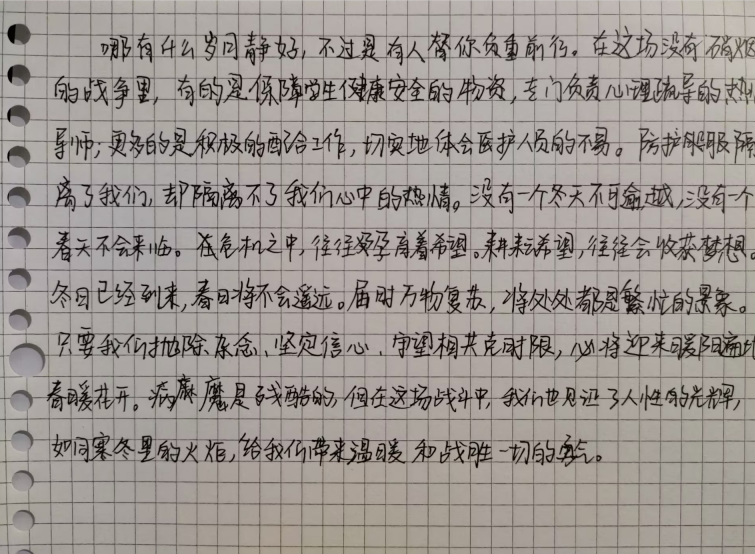 哪有什么岁月静好，不过是有人替你负重前行。在这场没有硝烟
的战争里，有的是保障学生健康安全的物资，专门负责心理疏导的热心
导师；更多的是积极的配合工作，切实地体会医护人员的不易。防护服服隔
离了我们，却隔离不了我们心中的热情。没有一个冬天不可逾越，没有一个
春天不会来临。在危机之中，往往孕育着希望。耕耘希望，往往会收获梦想。
冬日已经到来，春日将不会遥远。届时万物复苏，将处处都是繁忙的景象。
只要我们抛除杂念、坚定信心、守望相共克时限，必将迎来暖阳遍地
春暖花开。病魔是残酷的，但在这场战斗中，我们也见证了人性的光辉，
如同寒冬里的火炬，给我们带来温暖和战胜一切的勇气。